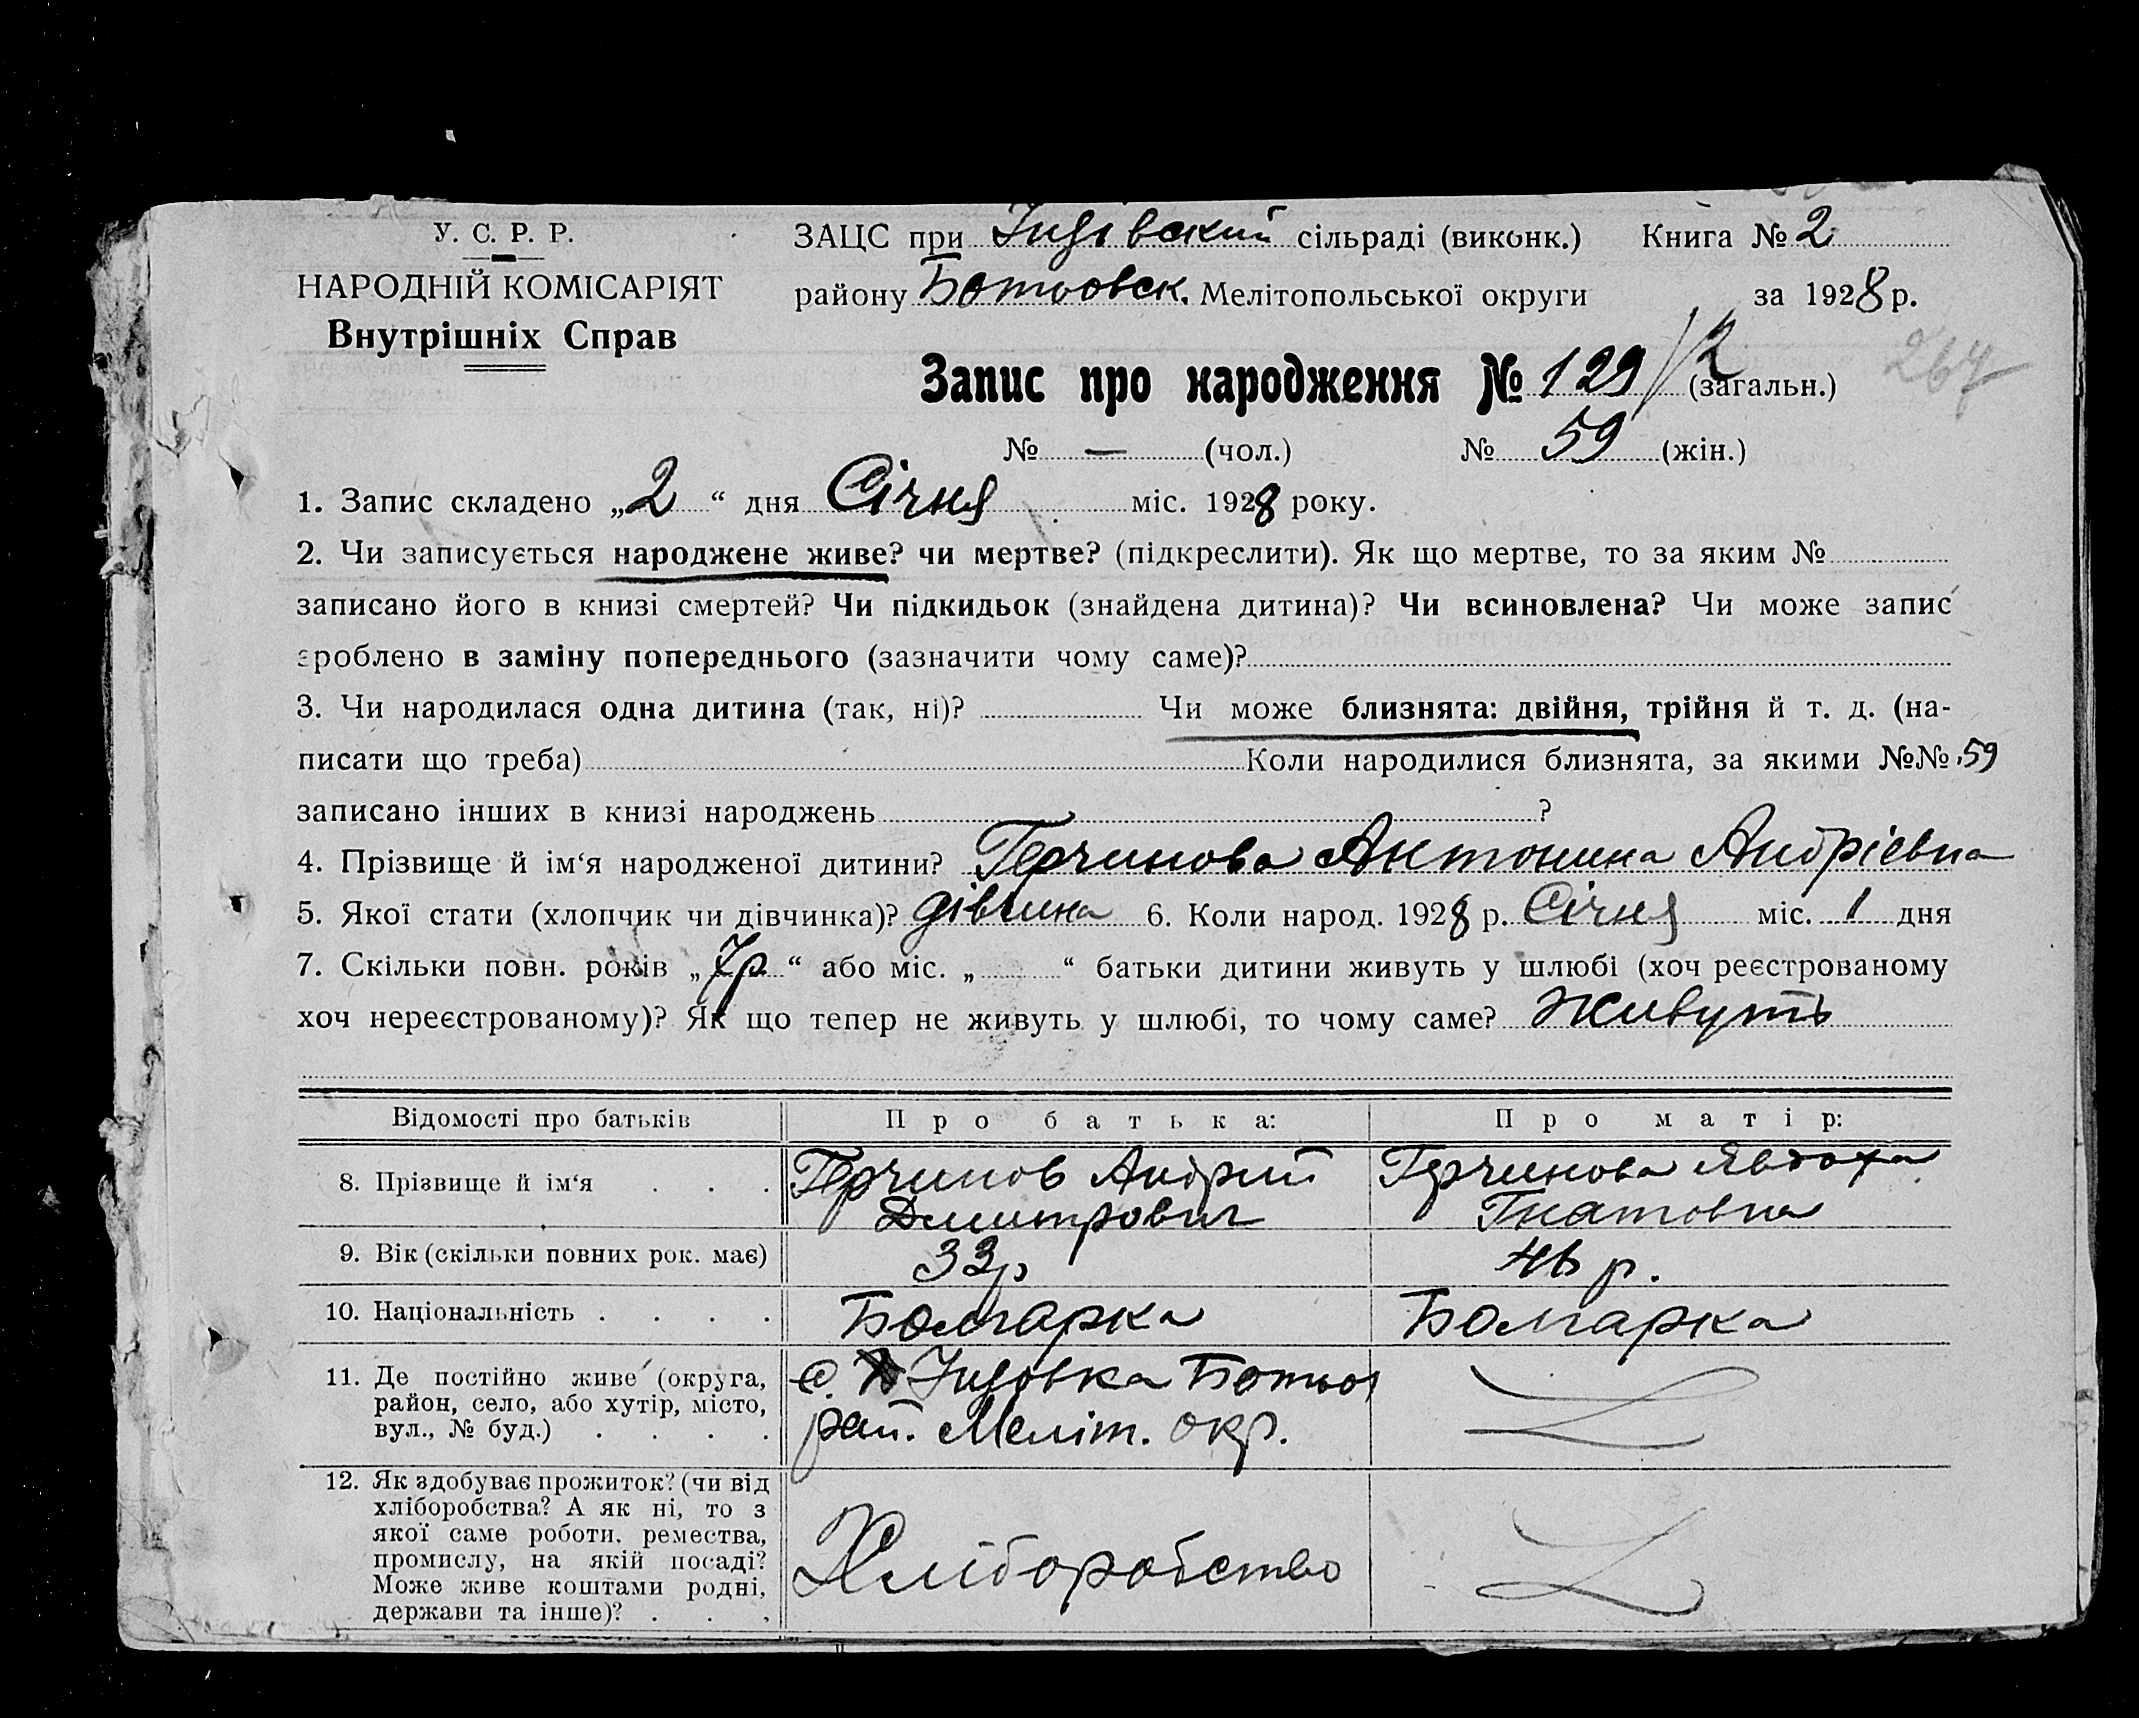 У. С. Р. Р.
НАРОДНІЙ КОМІСАРІЯТ
Внутрішніх Справ
ЗАЦС при Інзівский сільраді (виконк.) Книга № 2
району Ботьовск. Мелітопольської округи за 1928 р.
Запис про народження № 129/2 (загальн.)
264
№ — (чол.) № 59 (жін.)
1. Запис складено „2“ дня Січня міс. 1928 року.
2. Чи записується народжене живе? чи мертве? (підкреслити). Як що мертве, то за яким №
записано його в книзі смертей? Чи підкидьок (знайдена дитина)? Чи всиновлена? Чи може запис
зроблено в заміну попереднього (зазначити чому саме)?
3. Чи народилася одна дитина (так, ні)? Чи може близнята: двійня, трійня й т. д. (на-
писати що треба) Коли народилися близнята, за якими №№ 59
записано інших в книзі народжень ?
4. Прізвище й ім‘я народженої дитини? Герчинова Антонина Андрієвна
5. Якої стати (хлопчик чи дівчинка)? дівчина 6. Коли народ. 1928 р. Січня міс. 1 дня
7. Скільки повн. років „7р.“ або міс. „ “ батьки дитини живуть у шлюбі (хоч реєстрованому
хоч нереєстрованому)? Як що тепер не живуть у шлюбі, то чому саме? Живуть
Відомості про батьків Про батька: Про матір:
8. Прізвище й ім‘я . . . Герчинов Андрий Дмитрович Герчинова Явдоха Гнатовна
9. Вік (скільки повних рок. має) 33р 46 р.
10. Національність . . . . Болгарка Болгарка
11. Де постійно живе (округа,
район, село, або хутір, місто,
вул., № буд.) . . . .
с. Інзовка Ботьов
рай. Меліт. окр.
12. Як здобуває прожиток? (чи від
хліборобства? А як ні, то з
якої саме роботи, ремества,
промислу, на якій посаді?
Може живе коштами родні,
держави та інше)? . . .
Хліборобство